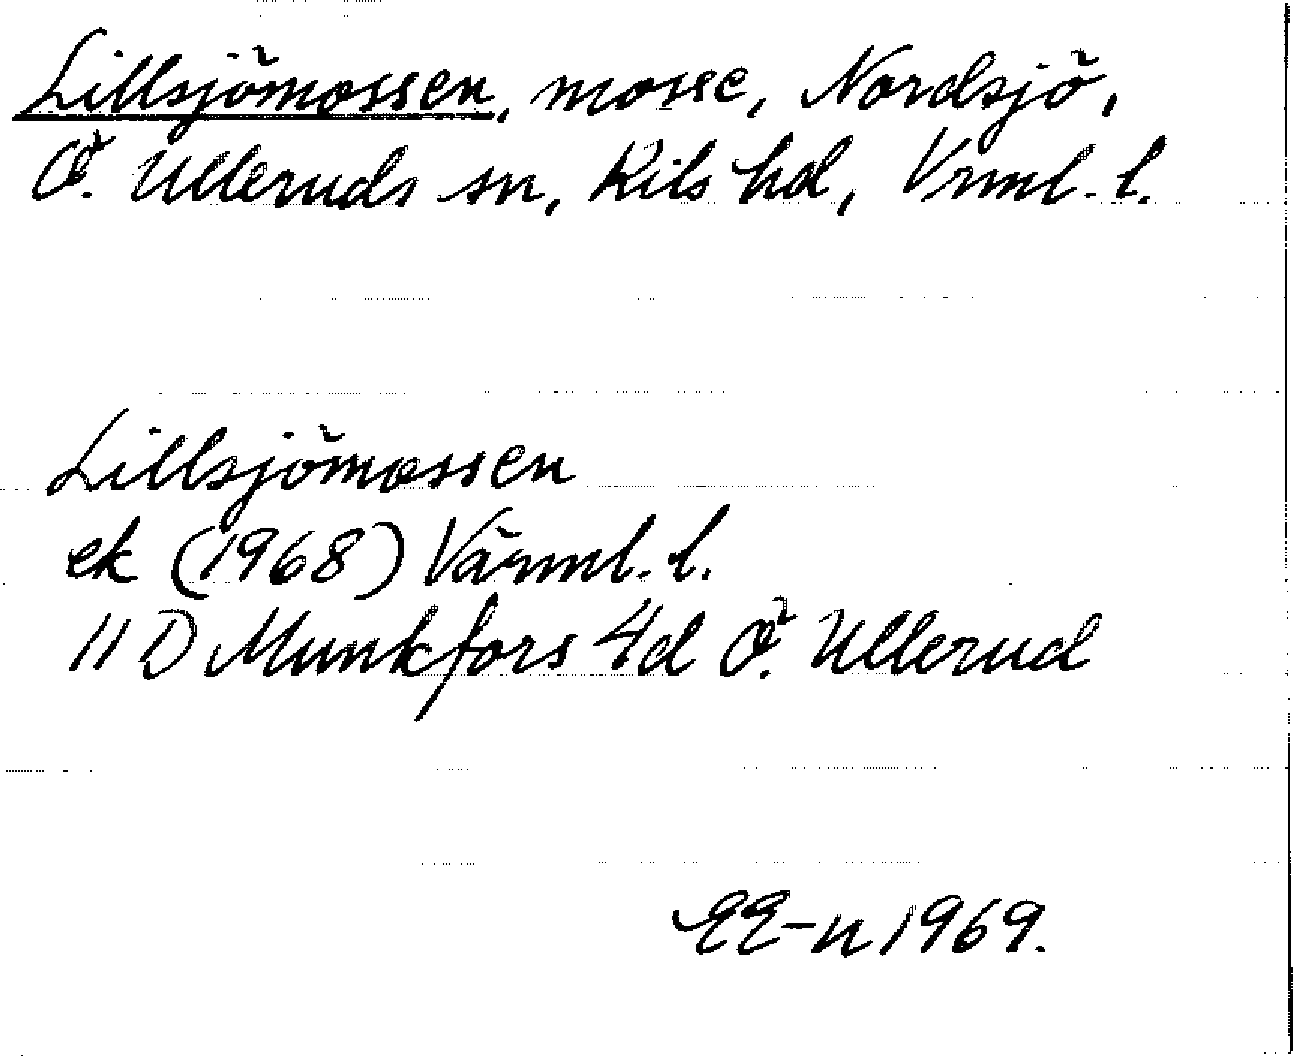 Lillsjömossen, mosse, Nordsjö,
Ö. Ulleruds sn, Kils hd, Vrml. l.
Lillsjömossen
ek (1968) Värml. l.
11 D Munkfors 4d Ö. Ullerud
EE-n 1969.